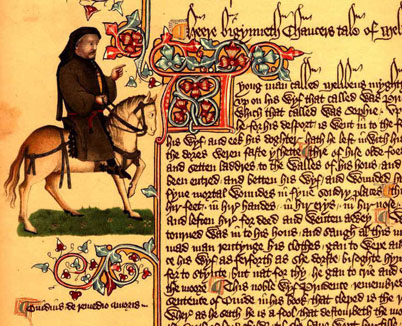 Heere bigynneth Chaucers tale of Mel
A yong man called Melibeus myghty
vp on his wyf that called was Pru
Which that called was Sophie / vp
he for his desport is went in to the f
his wyf and eek his doghter hath he left in with hi
the dores weren faste yshette Thre of hise olde foes
and setten laddres to the walles of his hous and
been entred / and betten his wyf and wounded h
fyue mortal woundes in fyue sondry places th
hir feet / in hir handes / in hir erys / in hir nose
and leften hir for deed and wenten awey
torned was in to his hous and saugh al this m
mad man rentynge his clothes gan to wepe an
his wyf as ferforth as she dorste bisoghte hym
for to stynte but nat for thy he gan to crie and
the moore This noble wyf Prudence remembred
sentence of Ouide in his book that cleped is the r
Wher as he seith he is a fool that destourbeth the mo
Ouidius de remedio amoris